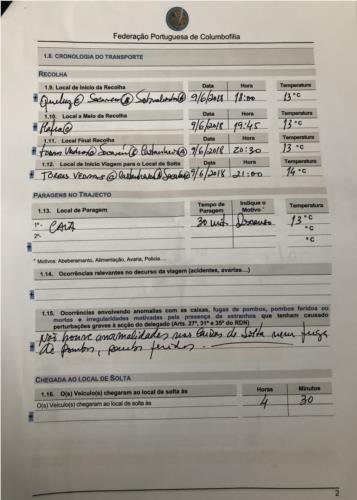 Federação Portuguesa de Columbofilia
1.8. CRONOLOGIA DO TRANSPORTE
RECOLHA
1.9. Local de Início da Recolha Data Hora Temperatura
Queluz@ Sacavém@ Sobralinho@ 9/6/2018 18:00 13 °C
1.10. Local a Meio da Recolha Data Hora Temperatura
Mafra@ 9/6/2018 19:45 13 °C
1.11. Local Final Recolha Data Hora Temperatura
Torres Vedras@ Sacavém@ 9/6/2018 20:30 13 °C
1.12. Local de Início Viagem para o Local de Solta Data Hora Temperatura
TORRES VEDRAS@ 9/6/2018 21:00 14 °C
PARAGENS NO TRAJECTO
1.13. Local de Paragem Tempo de Paragem Indique o Motivo * Temperatura
1ª- 30 min Descanso 13 °C
2ª- °C
°C
* Motivos: Abeberamento, Alimentação, Avaria, Polícia....
1.14. Ocorrências relevantes no decurso da viagem (acidentes, avarias...)
1.15. Ocorrências envolvendo anomalias com as caixas, fugas de pombos, pombos feridos ou
mortos e irregularidades motivadas pela presença de estranhos que tenham causado
perturbações graves à acção do delegado (Arts. 27º, 31º e 35º do RDN)
Não houve anomalidades nas caixas de Solta nem fuga
de pombos, pombos feridos.
CHEGADA AO LOCAL DE SOLTA
1.16. O(s) Veículo(s) chegaram ao local de solta às Horas Minutos
O(s) Veículo(s) chegaram ao local de solta às 4 30
2